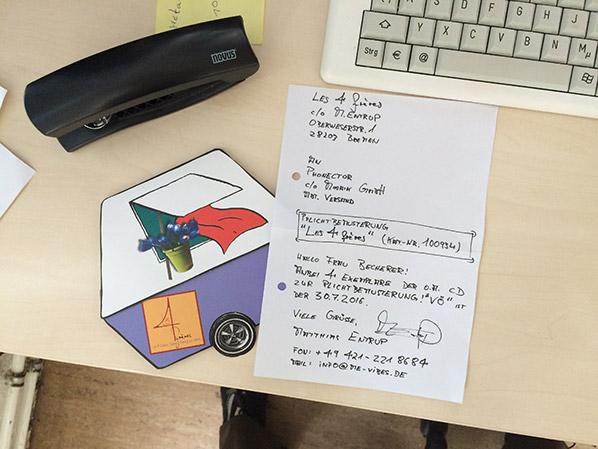 NOVUS
LES 4 frères
c/o M. ENTRUP
OBERWESERSTR. 1
28203 BREMEN
AN
PHONECTOR
c/o MORRIN GMBH
ABT. VERSAND
PLICHTBEMUSTERUNG
"LES 4 frères" (KAT-NR. 100934)
HALLO FRAU BECHERER!
ANBEI 4 EXEMPLARE DER O.A. CD
ZUR PLICHTBEMUSTERUNG! "VÖ" IST
DER 30.7.2016.
VIELE GRÜSSE,
MATTHIAS ENTRUP
FON: +49 421-221 8684
MAIL: INFO@ME-VIBES.DE
4
frères
Strg
€
@
Y
X
C
V
B
N
M
µ